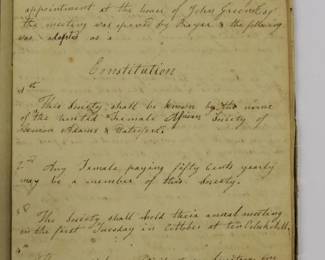 appointment at the house of John Greene Esq
the meeting was opened by Prayer & the following
was adopted as a
Constitution
1st
This Society shall be known by the name
of the United Female Society of
Adams &
2nd Any Female paying fifty Cents yearly
may be a member of this Society.
3d
The Society shall hold their annual meeting
on the first Tuesday in October at ten Oclock A.M.